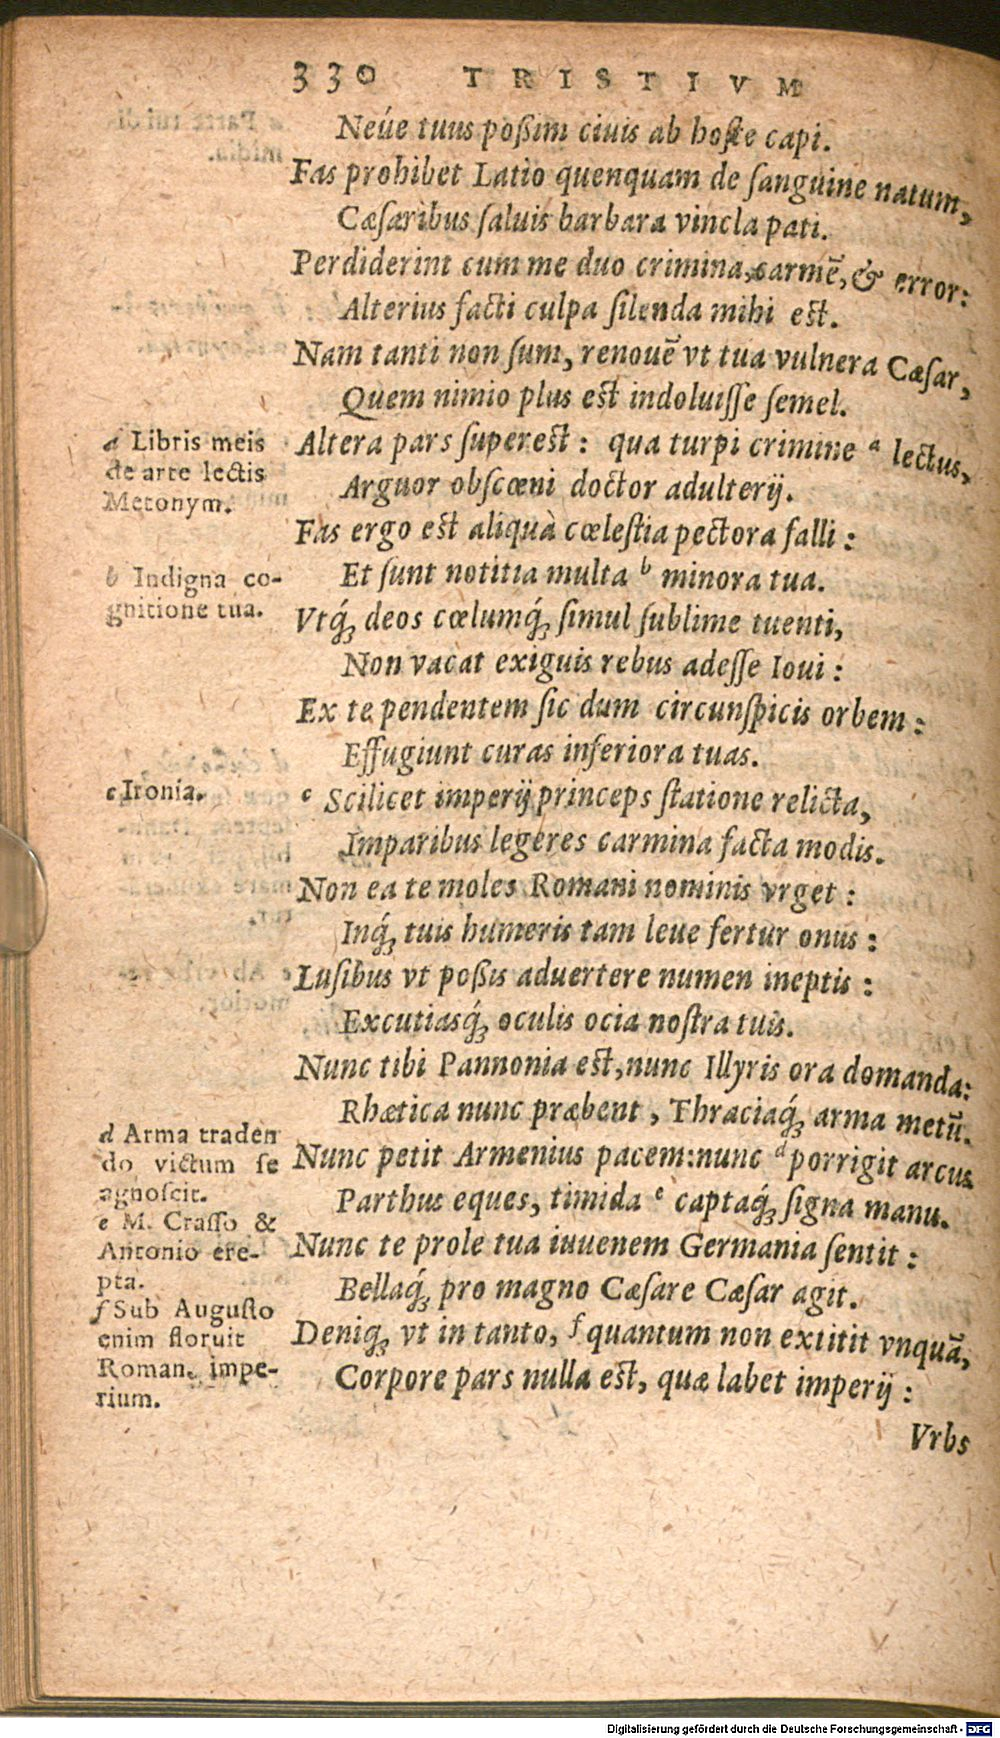 330 TRISTIVM
Neúe tuus poßim ciuis ab hoſte capi.
Fas prohibet Latio quenquam de ſanguine natum,
Cæſaribus ſaluis barbara vincla pati.
Perdiderint cum me duo crimina, carmē, & error:
Alterius facti culpa ſilenda mihi eſt.
Nam tanti non ſum, renouē vt tua vulnera Cæſar,
Quem nimio plus eſt indoluiſſe ſemel.
a Libris meis
de arte lectis
Metonym.
Altera pars ſupereſt: qua turpi crimine a lectus,
Arguor obſcœni doctor adulterij.
Fas ergo eſt aliquà cœleſtia pectora falli:
b Indigna co-
gnitione tua.
Et ſunt notitia multa b minora tua.
Vtq́; deos cœlumq́; ſimul ſublime tuenti,
Non vacat exiguis rebus adeſſe Ioui:
Ex te pendentem ſic dum circunſpicis orbem:
Effugiunt curas inferiora tuas.
c Ironia.
c Scilicet imperij princeps ſtatione relicta,
Imparibus legeres carmina facta modis.
Non ea te moles Romani nominis vrget:
Inq́; tuis humeris tam leue fertur onus:
Luſibus vt poßis aduertere numen ineptis:
Excutiasq́; oculis ocia noſtra tuis.
Nunc tibi Pannonia eſt, nunc Illyris ora domanda:
Rhætica nunc præbent, Thraciaq́; arma metū.
d Arma traden
do victum ſe
agnoſcit.
Nunc petit Armenius pacem: nunc d porrigit arcus
Parthus eques, timida e captaq́; ſigna manu.
e M. Craſſo &
Antonio ere-
pta.
Nunc te prole tua iuuenem Germania ſentit:
Bellaq́; pro magno Cæſare Cæſar agit.
f Sub Auguſto
enim floruit
Roman. impe-
rium.
Deniq́; vt in tanto, f quantum non extitit vnquā,
Corpore pars nulla eſt, quæ labet imperij:
Vrbs
Digitalisierung gefördert durch die Deutsche Forschungsgemeinschaft - DFG